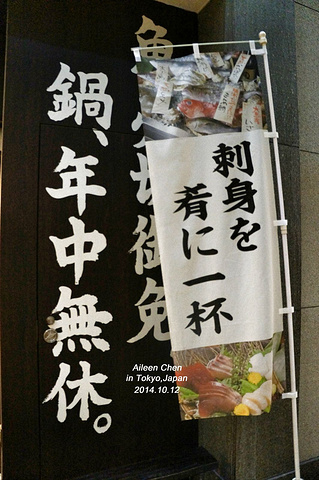 刺身を
肴に一杯
魚 御免
鍋、年中無休。
Aileen Chen
in Tokyo,Japan
2014.10.12